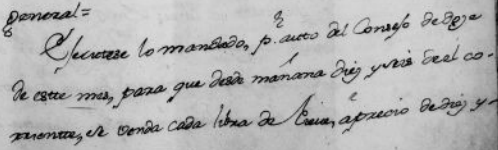 general=
Executese lo mandado, p.r auto del Consejo de doze
de este mes, para que desde mañana diez y seis de el co-
rriente, se venda cada libra de Cera, a precio de diez y